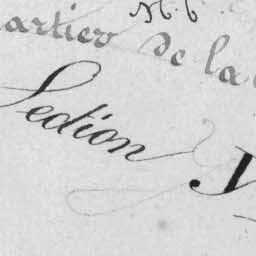 N.6
artier de la
Section